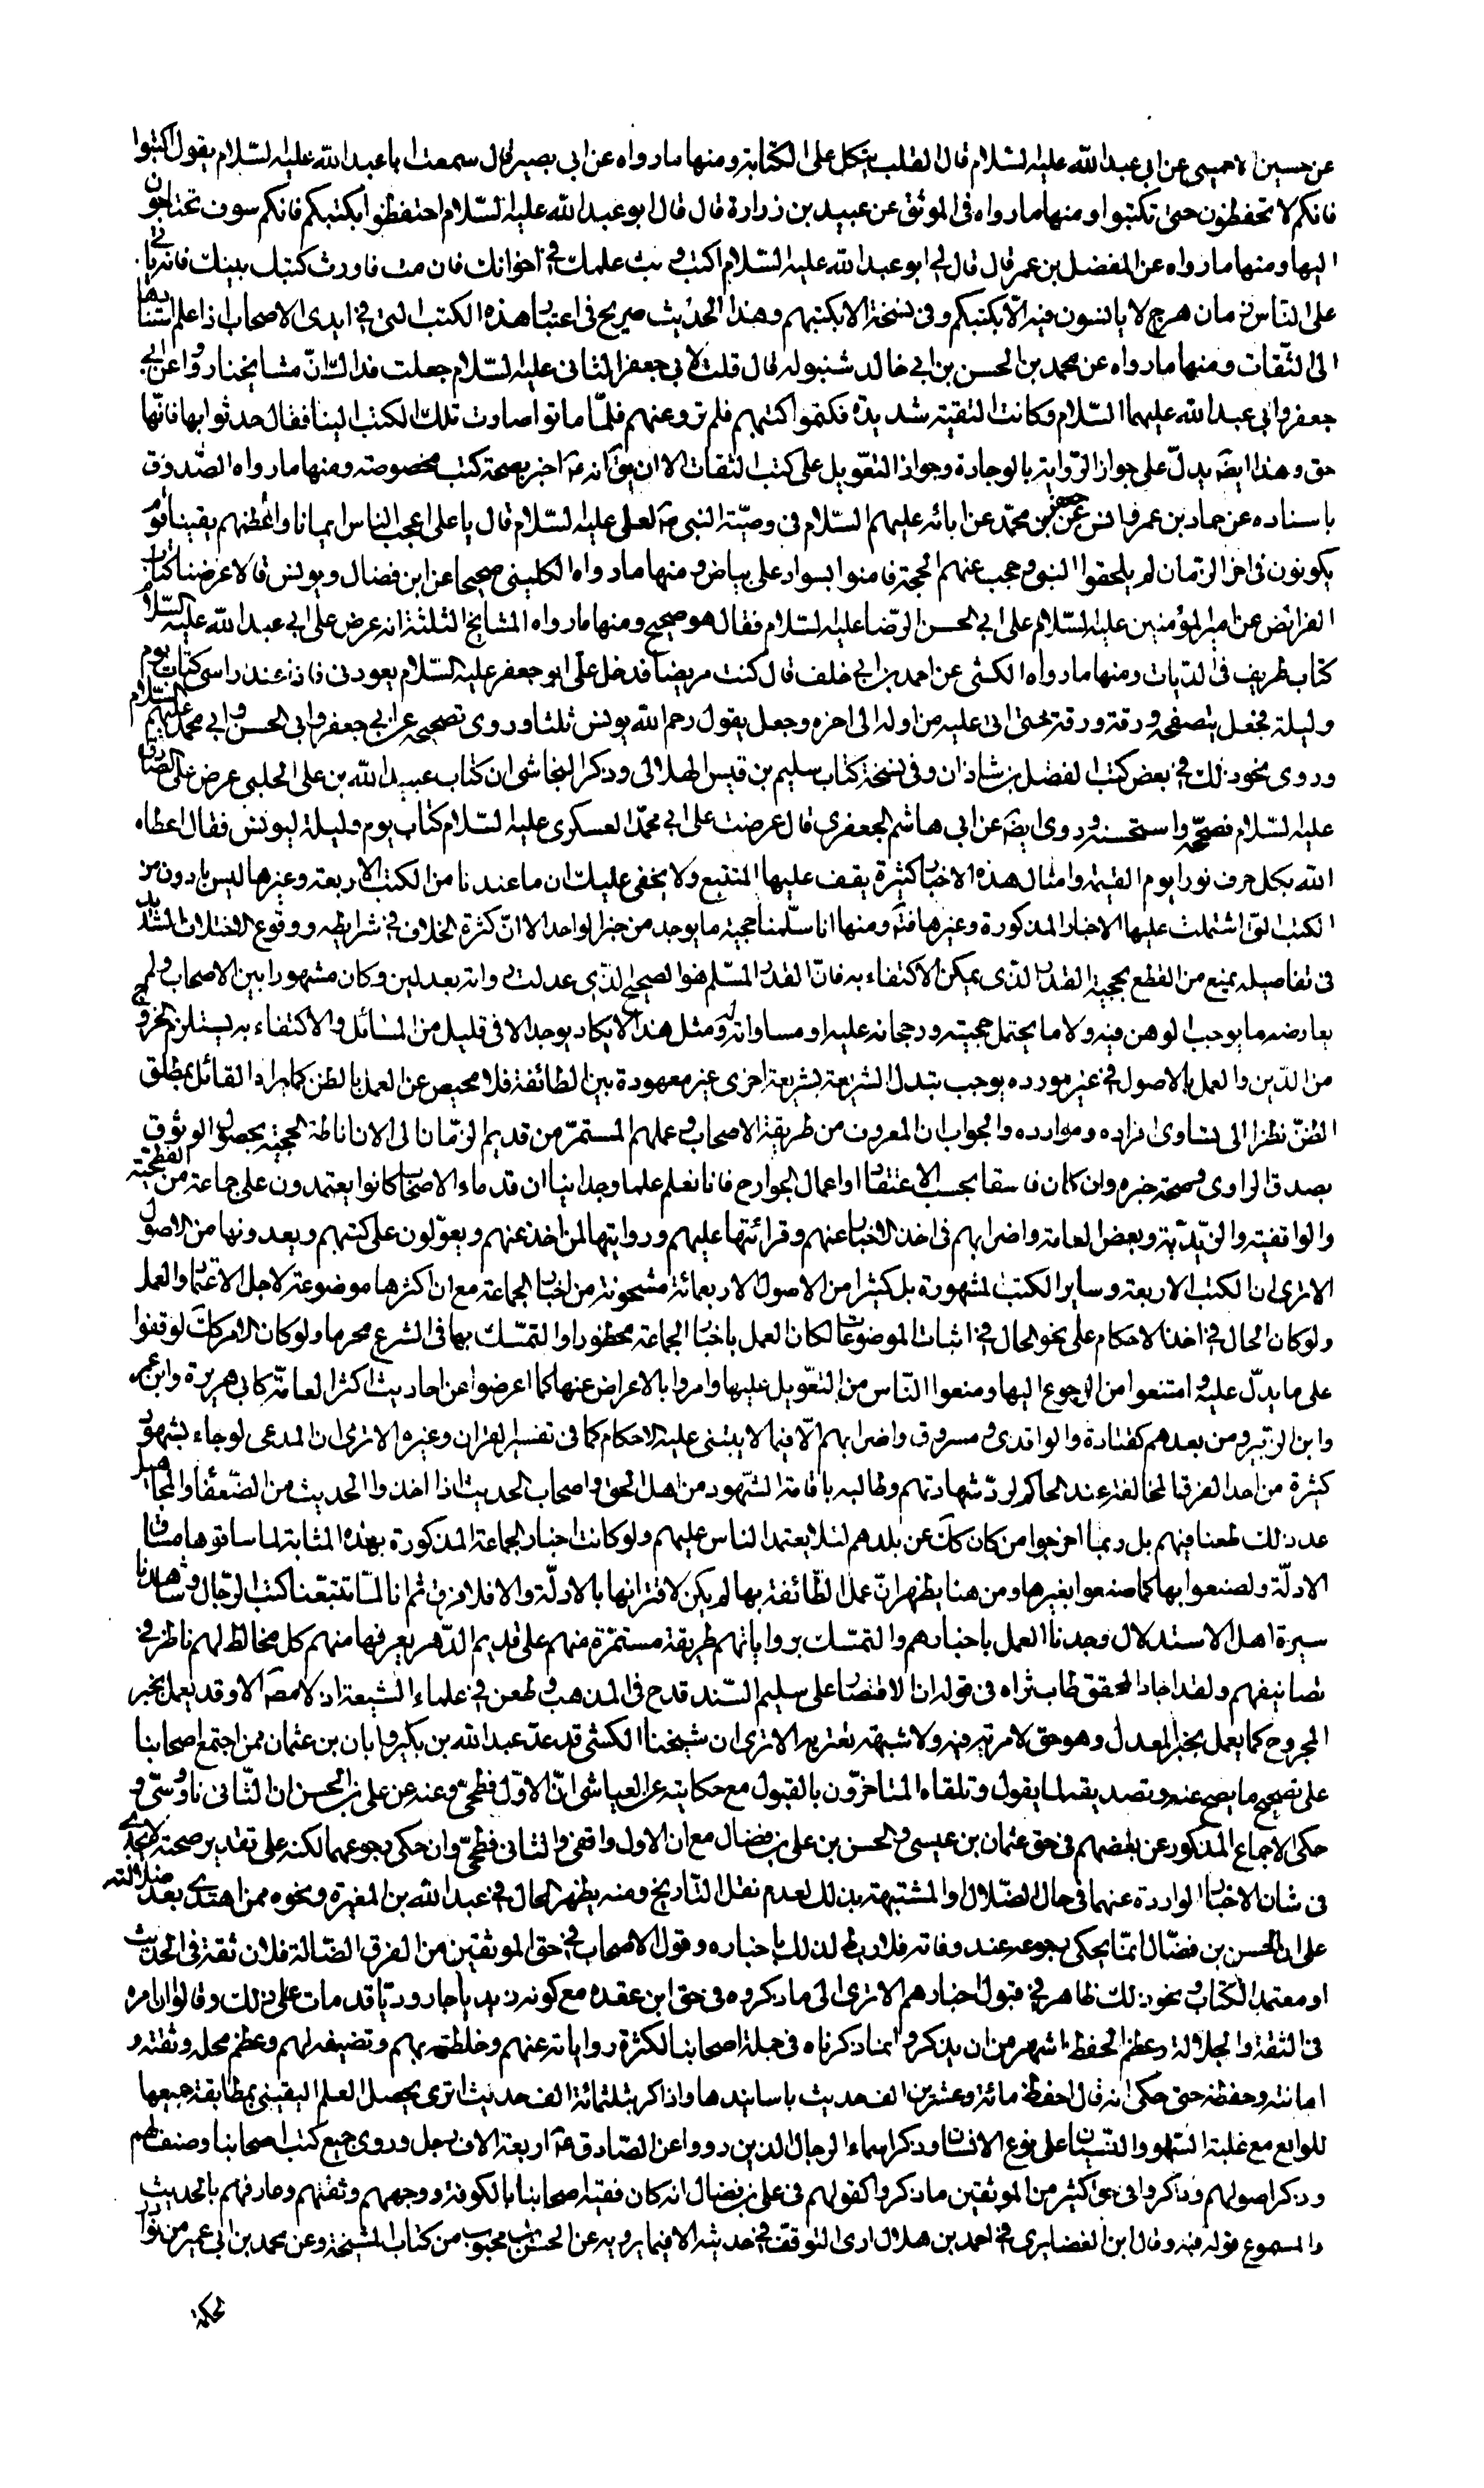 عن حسين الاحمسى عن ابى عبد الله عليه السّلام قال القلب يتكل على الكتابة ومنها ما رواه عن ابى بصير قال سمعت ابا عبد الله عليه السّلام يقول اكتبوا
فانكم لا تحفظون حتى تكتبوا ومنها ما رواه فى الموثق عن عبيد بن زرارة قال قال ابو عبد الله عليه السّلام احتفظوا بكتبكم فانكم سوف تحتاجون
اليها ومنها ما رواه عن المفضل بن عمر قال قال لى ابو عبد الله عليه السّلام اكتب وبث علمك فى اخوانك فان مت فاورث كتبك بنيك فانه ياتى
على النّاس زمان هرج لا يانسون فيه الّا بكتبكم وفى نسخة الا بكتبهم وهذا الحديث صريح فى اعتبار هذه الكتب التى فى ايدى الاصحاب اذا علم انتسابها
الى الثّقات ومنها ما رواه عن محمد بن الحسن بن ابى خالد شنبوله قال قلت لابى جعفر الثانى عليه السّلام جعلت فداك انّ مشايخنا رووا عن ابى
جعفر وابى عبد الله عليهما السّلام وكانت التقية شديدة فكتموا كتبهم فلم ترو عنهم فلمّا ماتوا صارت تلك الكتب الينا فقال حدثوا بها فانّها
حق وهذا ايضا يدلّ على جواز الرّواية بالوجادة وجواز التعويل على كتب الثقات الا ان يق انه ع اخبر بصحة كتب مخصوصة ومنها ما رواه الصّدوق
باسناده عن حماد بن عمر وانس عن جعفر بن محمّد عن ابائه عليهم السّلام فى وصيّة النبى ص لعلى عليه السّلام قال يا على اعجب الناس ايمانا واعظمهم يقينا قوم
يكونون فى اخر الزّمان لم يلحقوا النبى وحجب عنهم الحجة فامنوا بسواد على بياض ومنها ما رواه الكلينى صحيحا عن ابن فضال ويونس قالا عرضنا كتاب
الفرائض عن امير المؤمنين عليه السّلام على ابى الحسن الرّضا عليه السّلام فقال هو صحيح ومنها ما رواه المشايخ الثلثة انه عرض على ابى عبد الله عليه السّلام
كتاب ظريف فى الدّيات ومنها ما رواه الكشى عن احمد بن ابى خلف قال كنت مريضا فدخل علىّ ابو جعفر عليه السّلام يعودنى فاذا عند راسى كتاب يوم
وليلة فجعل يتصفحه ورقة ورقة حتى اتى عليه من اوله الى اخره وجعل يقول رحم الله يونس ثلثا وروى تصحيحه عن ابى جعفر وابى الحسن وابى محمد عليهم السّلام
وروى نحو ذلك فى بعض كتب الفضل بن شاذان وفى نسخة كتاب سليم بن قيس الهلالى وذكر النجاشى ان كتاب عبيد الله بن على الحلبى عرض على الصّادق
عليه السّلام فصحّحه واستحسنه وروى ايضا عن ابى هاشم الجعفرى قال عرضت على ابى محمّد العسكرى عليه السّلام كتاب يوم وليلة ليونس فقال اعطاه
الله بكل حرف نورا يوم القيمة وامثال هذه الاخبار كثيرة يقف عليها المتتبع ولا يخفى عليك ان ما عندنا من الكتب الاربعة وغيرها ليس بادون من
الكتب التى اشتملت عليها الاخبار المذكورة وغيرها فتم ومنها انا سلّمنا حجية ما يوجد من خبر الواحد الا انّ كثرة الخلاف فى شرايطه ووقوع الاختلاف الشّديد
فى تفاصيله يمنع من القطع بحجية القدر الذى يمكن الاكتفاء به فانّ القدر المسّلم هو الصحيح الذى عدلت رواته بعدلين وكان مشهورا بين الاصحاب ولم
يعارضه ما يوجب الوهن فيه ولا ما يحتمل حجيته ورجحانه عليه او مساواته له ومثل هذا لا يكاد يوجد الا فى قليل من المسائل والاكتفاء به يستلزم الخروج
من الدّين والعمل بالاصول فى غير مورده يوجب تبدل الشريعة بشريعة اخرى غير معهودة بين الطائفة فلا محيص عن العمل بالظن كما يراه القائل بمطلق
الظنّ نظرا الى تساوى افراده وموارده والجواب ان المعروف من طريقة الاصحاب وعملهم المستمرّ من قديم الزّمان الى الان اناطة الحجية بحصول الوثوق
بصدق الراوى وصحة خبره وان كان فاسقا بحسب الاعتقاد او اعمال الجوارح فانا نعلم علما وجدانيا ان قدماء الاصحاب كانوا يعتمدون على جماعة من الفطحية
والواقفية والزّيديّة وبعض العامة واضرابهم فى اخذ الاخبار عنهم وقرائتها عليهم وروايتها لمن اخذ عنهم ويعوّلون على كتبهم ويعدونها من الاصول
الا ترى ان الكتب الاربعة وساير الكتب المشهورة بل كثيرا من الاصول الاربعمائة مشحونة من اخبار الجماعة مع ان اكثرها موضوعة لاجل الاعتماد والعمل
ولو كان الحال فى اخذ الاحكام على نحو الحال فى اثبات الموضوعات لكان العمل باخبار الجماعة محظورا والتمسّك بها فى الشرع محرما ولو كان الامر كك لوقفوا
على ما يدلّ عليه وامتنعوا من الرجوع اليها ومنعوا النّاس من التعويل عليها وامروا بالاعراض عنها كما اعرضوا عن احاديث اكثر العامّة كابى هريرة وابن عمر
وابن الزبير ومن بعدهم كقتادة والواقدى ومسروق واضرابهم الّا فيما لا يبتنى عليه الاحكام كما فى تفسير القران وغيره الا ترى ان المدعى لو جاء بشهود
كثيرة من احد الفرق المخالفة عند الحاكم لردّ شهادتهم وطالبه باقامة الشّهود من اهل الحق واصحاب الحديث اذا اخذوا الحديث من الضّعفاء والمجاهيل
عد ذلك طعنا فيهم بل ربما اخرجوا من كان كك عن بلدهم لئلا يعتمد الناس عليهم ولو كانت اخبار الجماعة المذكورة بهذه المثابة لما ساقوها مساق
الادلّة ولصنعوا بها كما صنعوا بغيرها ومن هنا يظهر انّ عمل الطّائفة بها لم يكن لاقترانها بالادلّة والا فلا فرق ثم انا لمّا تتبّعنا كتب الرّجال وشاهدنا
سيرة اهل الاستدلال وجدنا العمل باخبارهم والتمسّك برواياتهم طريقة مستمرّة منهم على قديم الدّهر يعرفها منهم كل مخالط لهم ناظر فى
تصانيفهم ولقد اجاد المحقق طاب ثراه فى قوله ان الاقتصار على سليم السّند قدح فى المذهب وطعن فى علماء الشيعة اذ لا مصنف الا وقد يعمل بخبر
المجروح كما يعمل بخبر المعدل وهو حق لا مرية فيه ولا شبهة تعتريه الا ترى ان شيخنا الكشى قد عدّ عبد الله بن بكير وابان بن عثمان ممن اجتمع اصحابنا
على تصحيح ما يصح عنه وتصديقه لما يقول وتلقاه المتاخرّون بالقبول مع حكايته عن العياشى انّ الاوّل فطحى وعنه عن على بن الحسن ان الثّانى ناووسىّ و
حكى الاجماع المذكور عن بعضهم فى حق عثمان بن عيسى والحسن بن على بن فضال مع ان الاول واقفى والثانى فطحىّ وان حكى رجوعهما لكنه على تقدير صحته لا يجدى
فى شان الاخبار الواردة عنهما فى حال الضّلال او المشتبهة بذلك لعدم نقل التّاريخ ومنه يظهر الحال فى عبد الله بن المغيرة ونحوه ممن اهتدى بعد ضلالته
على ان الحسن بن فضّال انمّا يحكى رجوعه عند وفاته فلا ربط لذلك باخباره وقول الاصحاب فى حق الموثقين من الفرق الضّالة فلان ثقة فى الحديث
او معتمد الكتاب ونحو ذلك ظاهر فى قبول اخبارهم الا ترى الى ما ذكروه فى حق ابن عقده مع كونه زيديا جاروديّا قد مات على ذلك وقالوا ان امره
فى الثقة والجلالة وعظم الحفظ اشهر من ان يذكر وانما ذكرناه فى جملة اصحابنا لكثرة رواياته عنهم وخلطته بهم وتصنيفه لهم وعظم محله وثقته و
امانته وحفظه حتى حكى انه قال احفظ مائة وعشرين الف حديث باسانيدها واذاكر بثلثمائة الف حديث اترى يحصل العلم اليقينى بمطابقة جميعها
للواقع مع غلبة السّهو والنّسيان على نوع الانسان وذكر اسماء الرجال الذين رووا عن الصّادق ع اربعة الاف رجل وروى جميع كتب اصحابنا وصنف لهم
وذكر اصولهم وذكروا فى حق كثير من الموثقين ما ذكروا كقولهم فى على بن فضال انه كان فقيه اصحابنا بالكوفة ووجههم وثقتهم وعارفهم بالحديث
والمسموع قوله فيه وقال ابن الغضايرى فى احمد بن هلال ارى التوقف فى حديثه الا فيما يرويه عن الحسن بن محبوب من كتاب المشيخة وعن محمد بن ابى عمير من نوادره